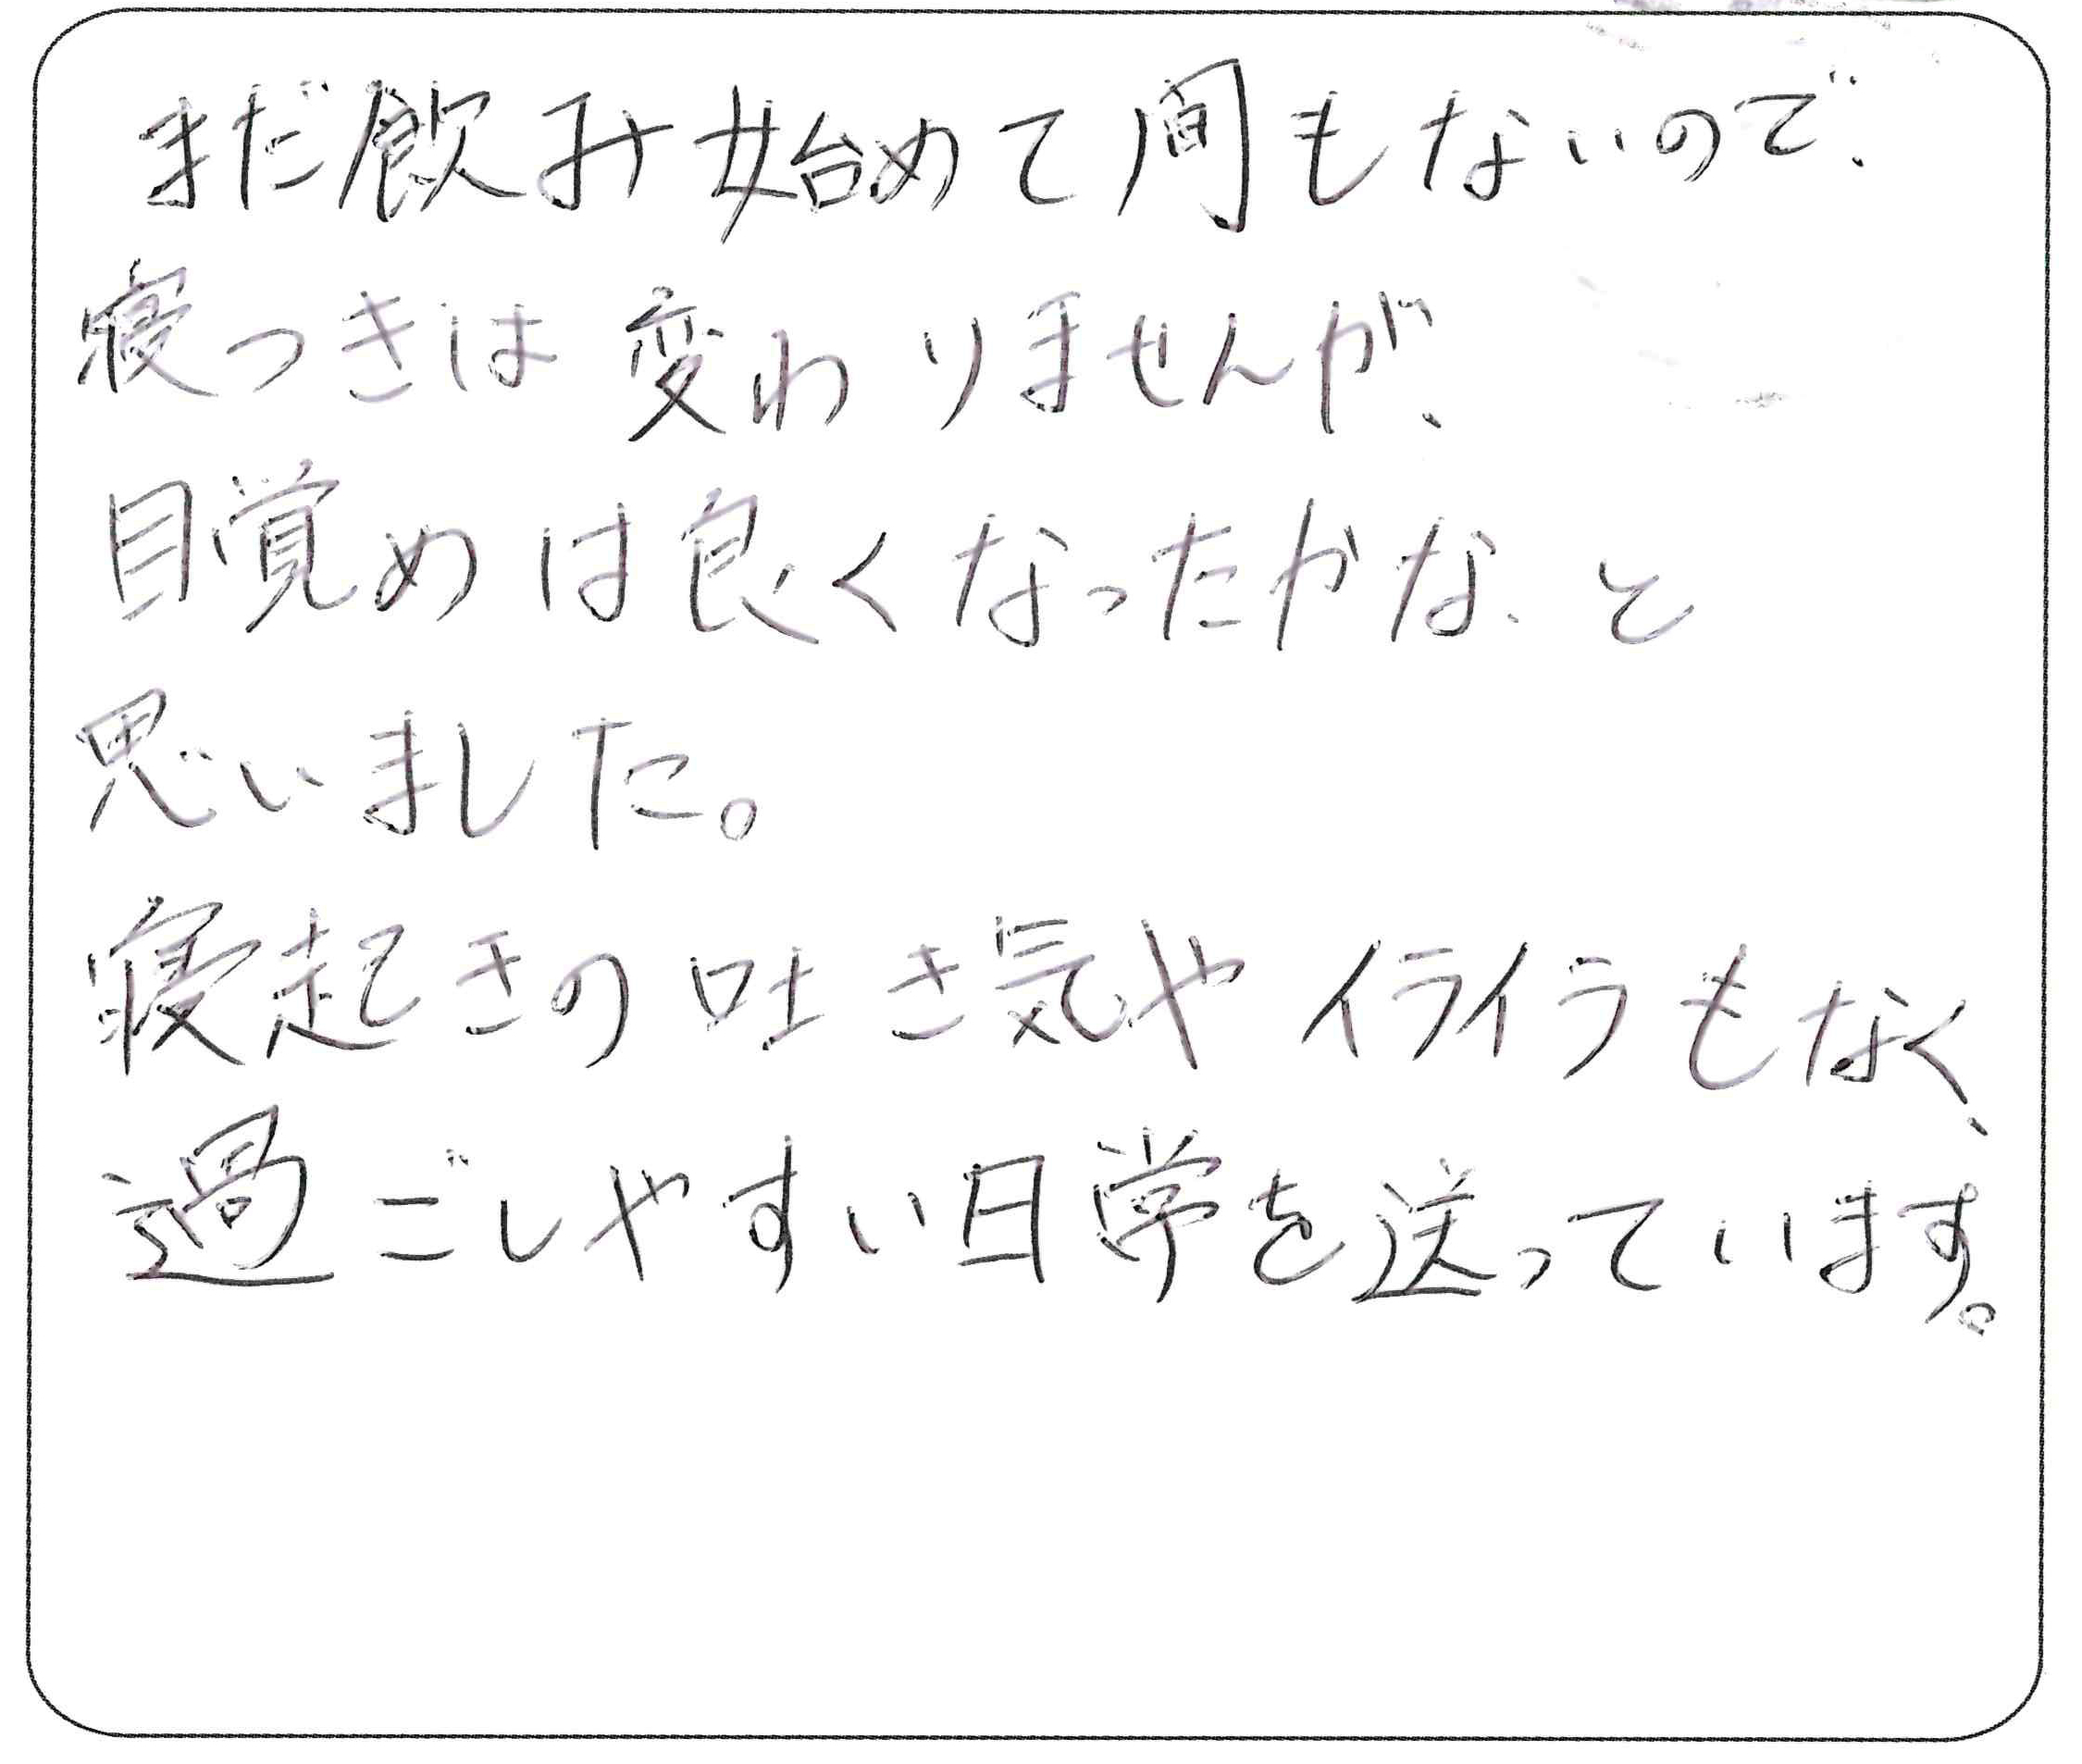 まだ飲み始めて間もないので、
寝つきは変わりませんが、
目覚めは良くなったかな、と
思いました。
寝起きの吐き気やイライラもなく、
過ごしやすい日常を送っています。